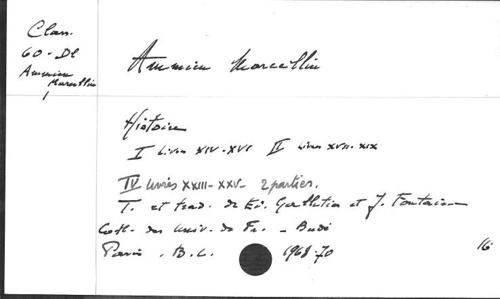 Class.
60-DL
Ammien
Marcellin
1
Ammien Marcellin
Histoire
I Livres XIV-XVI II Livres XVII-XIX
IV Livres XXIII-XXV - 2 parties.
T. et trad. de Ed. Galletier et J. Fontaine
Coll. des Univ. de Fr. - Budé
Paris. B.L. 1968-70
16